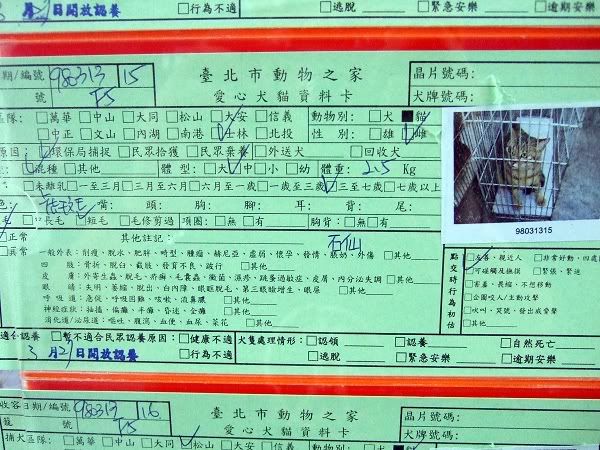 日開放認養 □行為不適 □逃脫 □緊急安樂 □逾期安樂
期/編號 98313 15 臺北市動物之家 晶片號碼:
號 T5 愛心犬貓資料卡 犬牌號碼:
區隊: □萬華 □中山 □大同 □松山 □大安 □信義 動物別: □犬 ■貓
□中正 □文山 □內湖 □南港 □士林 □北投 性別: □雄 □雌
原因: □環保局捕捉 □民眾拾獲 □民眾棄養 □外送犬 □回收犬
□混種 □其他 體型: □大 □中 □小 □幼 體重: 2.5 Kg
□未離乳 □一至三月 □三月至六月 □六月至一歲 □一歲至三歲 □三至七歲 □七歲以上
色: 虎斑毛 嘴: 頭: 胸: 腳: 耳: 背: 尾:
□長毛 □短毛 □毛修剪過 項圈: □無 □有 胸背: □無 □有
□正常 其他註記: 石仙
□異常 一般外表: 削瘦、脫水、肥胖、畸型、腫瘤、赫尼亞、虛弱、懷孕、發情、脹奶、外傷 □其他
四肢: 骨折、脫臼、截肢、發育不良、跛行 □其他
皮膚: 外寄生蟲、脫毛、疥癬、毛囊蟲、黴菌、濕疹、跳蚤過敏症、膿胞、內分泌失調 □其他
眼睛: 失明、萎縮、脫出、白內障、眼瞼脫毛、第三眼瞼增生、眼屎 □其他
呼吸道: 急促、呼吸困難、咳嗽、流鼻膿 □其他
神經症狀: 抽搐、偏癱、半癱、昏迷、全癱 □其他
消化道/泌尿道: 嘔吐、腹瀉、血便、血尿、菜花 □其他
98031315
點交時行為初估
□友善、親近人 □非常好動、四處
□可碰觸及撫摸 □緊張、緊迫
□害羞、長縮、不想移動
□會圍咬人/主動攻擊
□吹叫、哭號、發出威脅聲
□其他
適合認養 □暫不適合民眾認養原因: □健康不適 犬隻處理情形: □認領 □認養 □自然死亡
3月21日開放認養 □行為不適 □逃脫 □緊急安樂 □逾期安樂
收容日期/編號 98313 16 臺北市動物之家 晶片號碼:
籠號 T5 愛心犬貓資料卡 犬牌號碼:
捕犬區隊: □萬華 □中山 □大同 □松山 □大安 □信義 動物別: □犬 ■貓